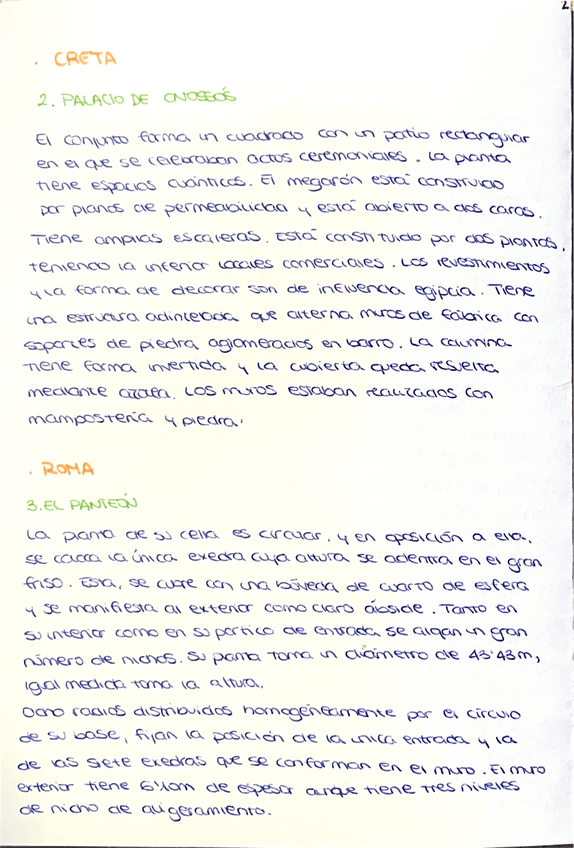 2
. CRETA
2. PALACIO DE CNOSSÓS
El conjunto forma un cuadrado con un patio rectangular
en el que se celebraban actos ceremoniales. La planta
tiene espacios cuánticos. El megarón está construido
por planos de permeabilidad y está abierto a dos caras.
Tiene amplias escaleras. Está constituido por dos plantas,
teniendo la inferior locales comerciales. Los revestimientos
y la forma de decorar son de influencia egipcia. Tiene
una estructura adintelada que alterna muros de fábrica con
soportes de piedra aglomerados en barro. La columna
tiene forma invertida y la cubierta queda resuelta
mediante azotea. Los muros estaban realizados con
mampostería y piedra.
. ROMA
3. EL PANTEÓN
La planta de su cella es circular, y en oposición a ella,
se coloca la única exedra cuya altura se adentra en el gran
friso. Esta, se cubre con una bóveda de cuarto de esfera
y se manifiesta al exterior como claro ábside. Tanto en
su interior como en su portico de entrada se alojan un gran
número de nichos. Su planta toma un diámetro de 43'43m,
igual medida toma la altura.
Ocho radios distribuidos homogéneamente por el círculo
de su base, fijan la posición de la única entrada y la
de las siete exedras que se conforman en el muro. El muro
exterior tiene 6'40m de espesor aunque tiene tres niveles
de nicho de aligeramiento.